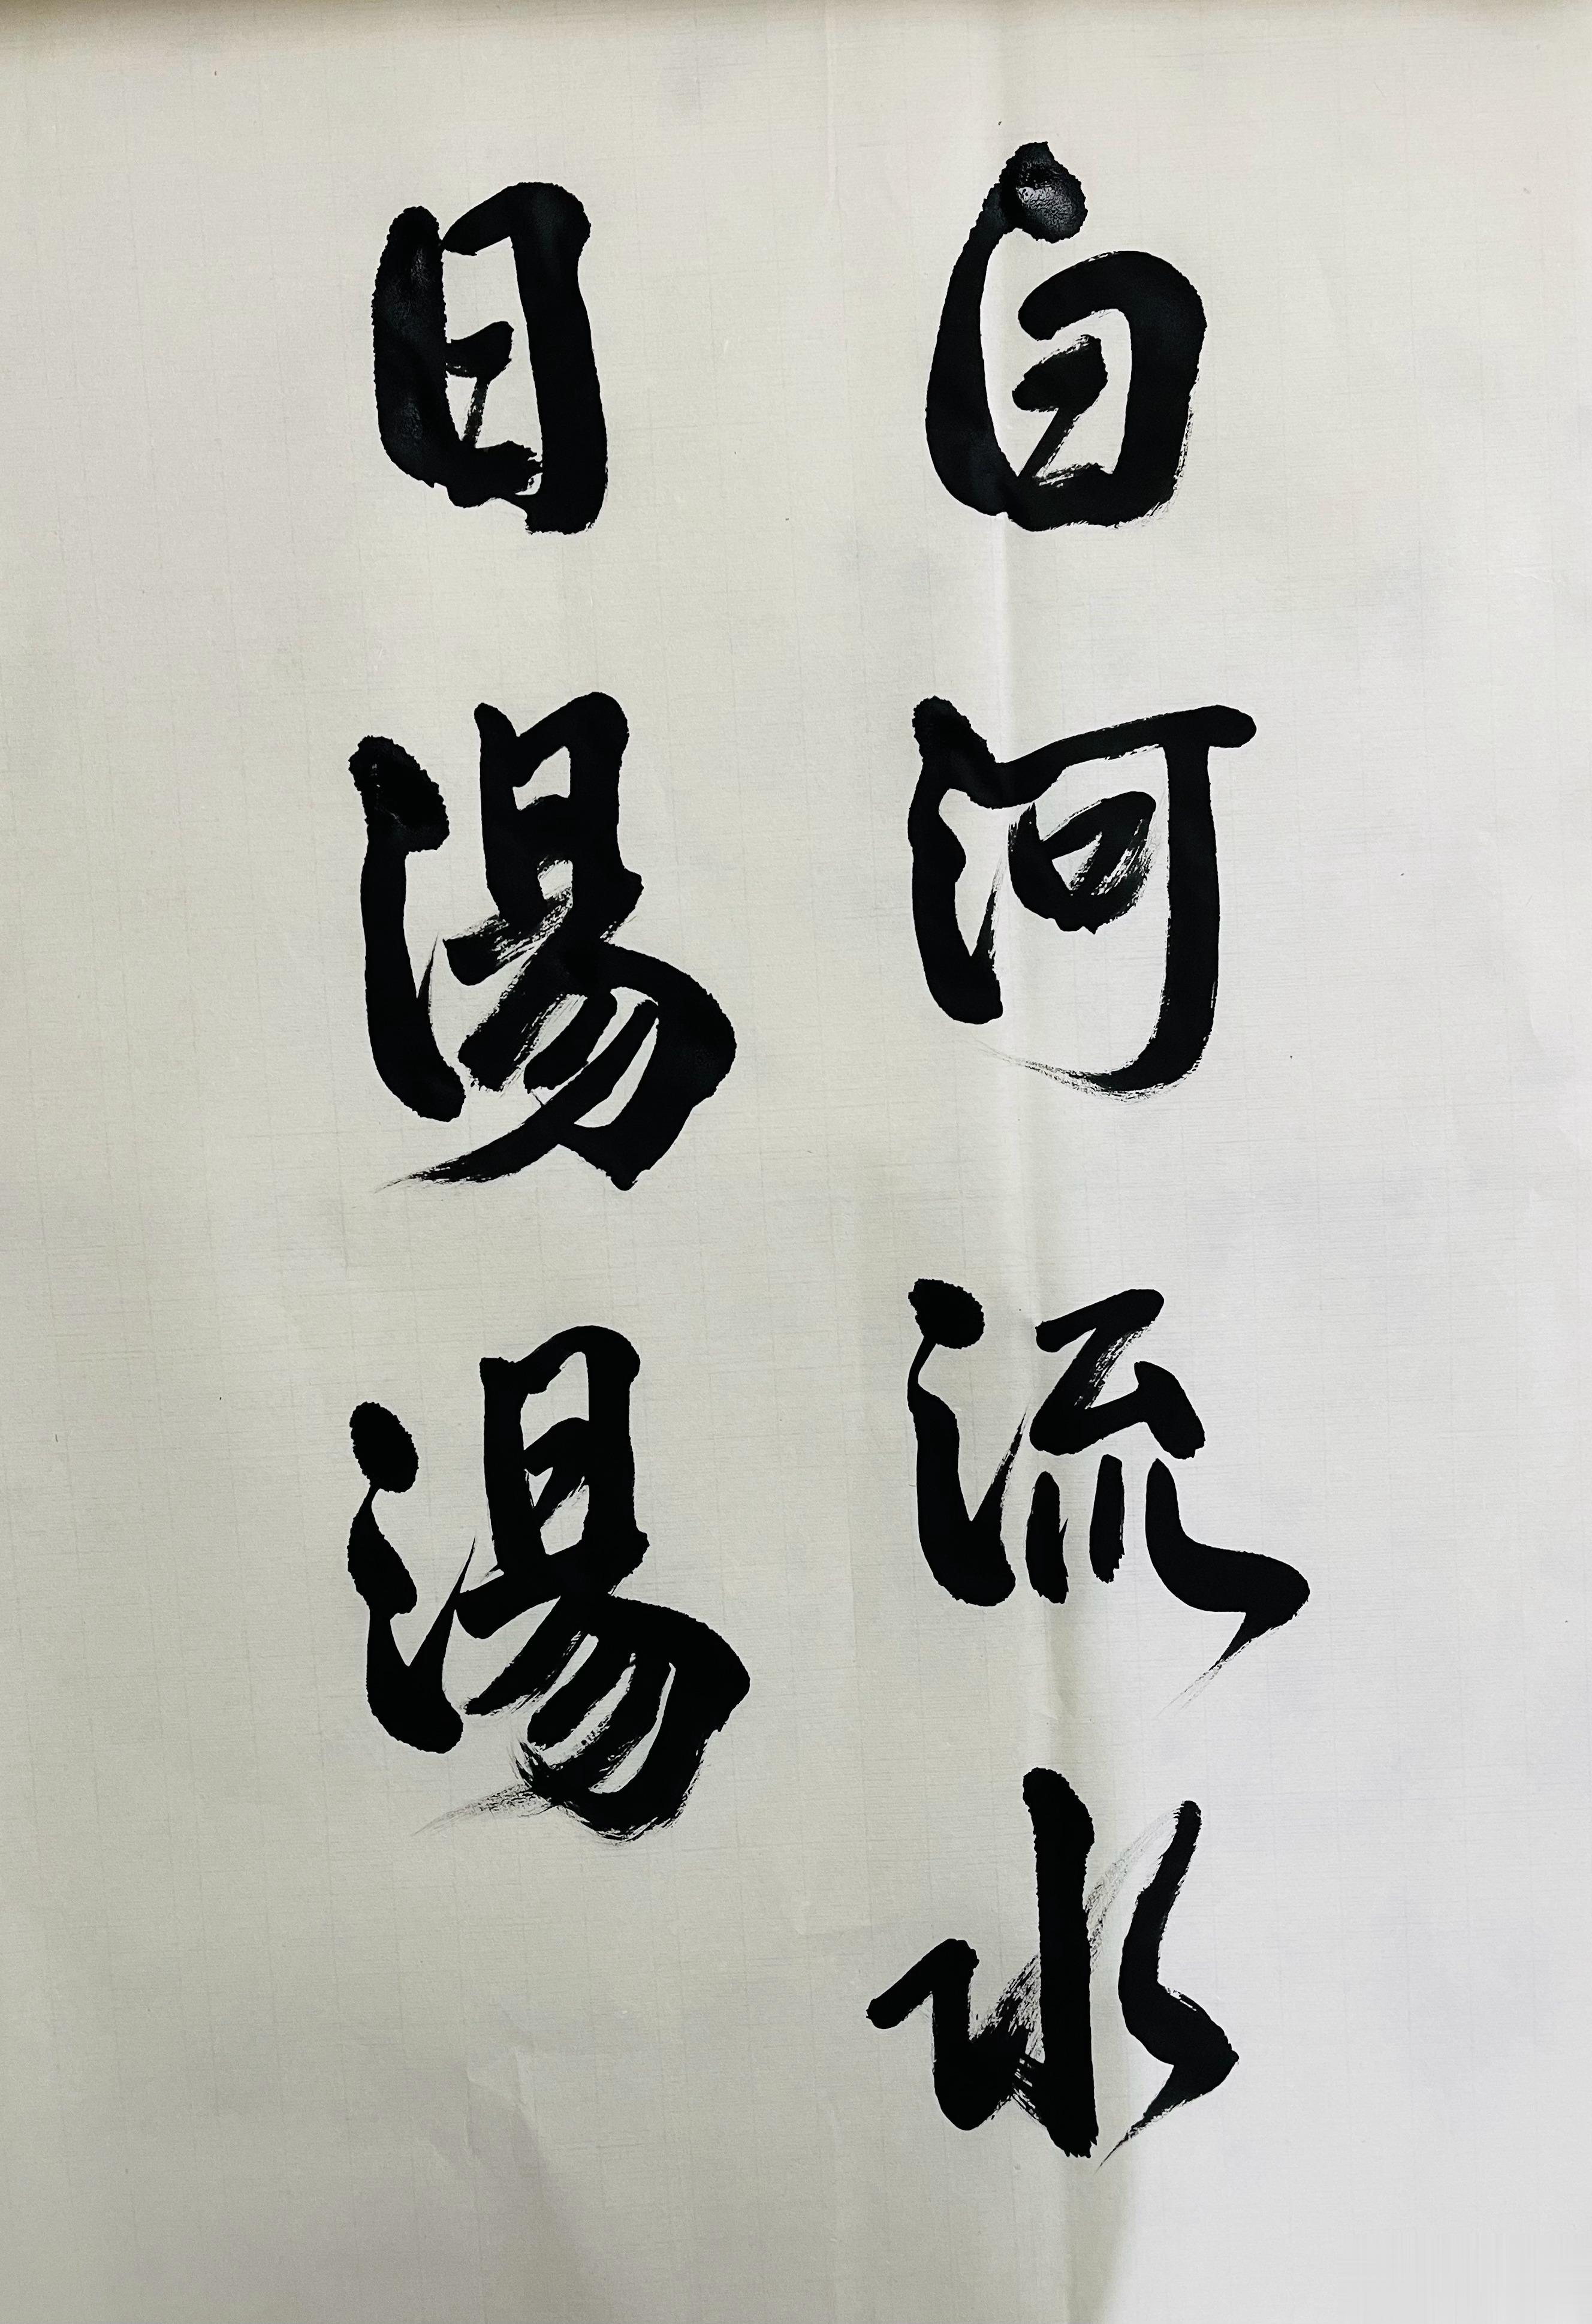 白河流水
日湯湯